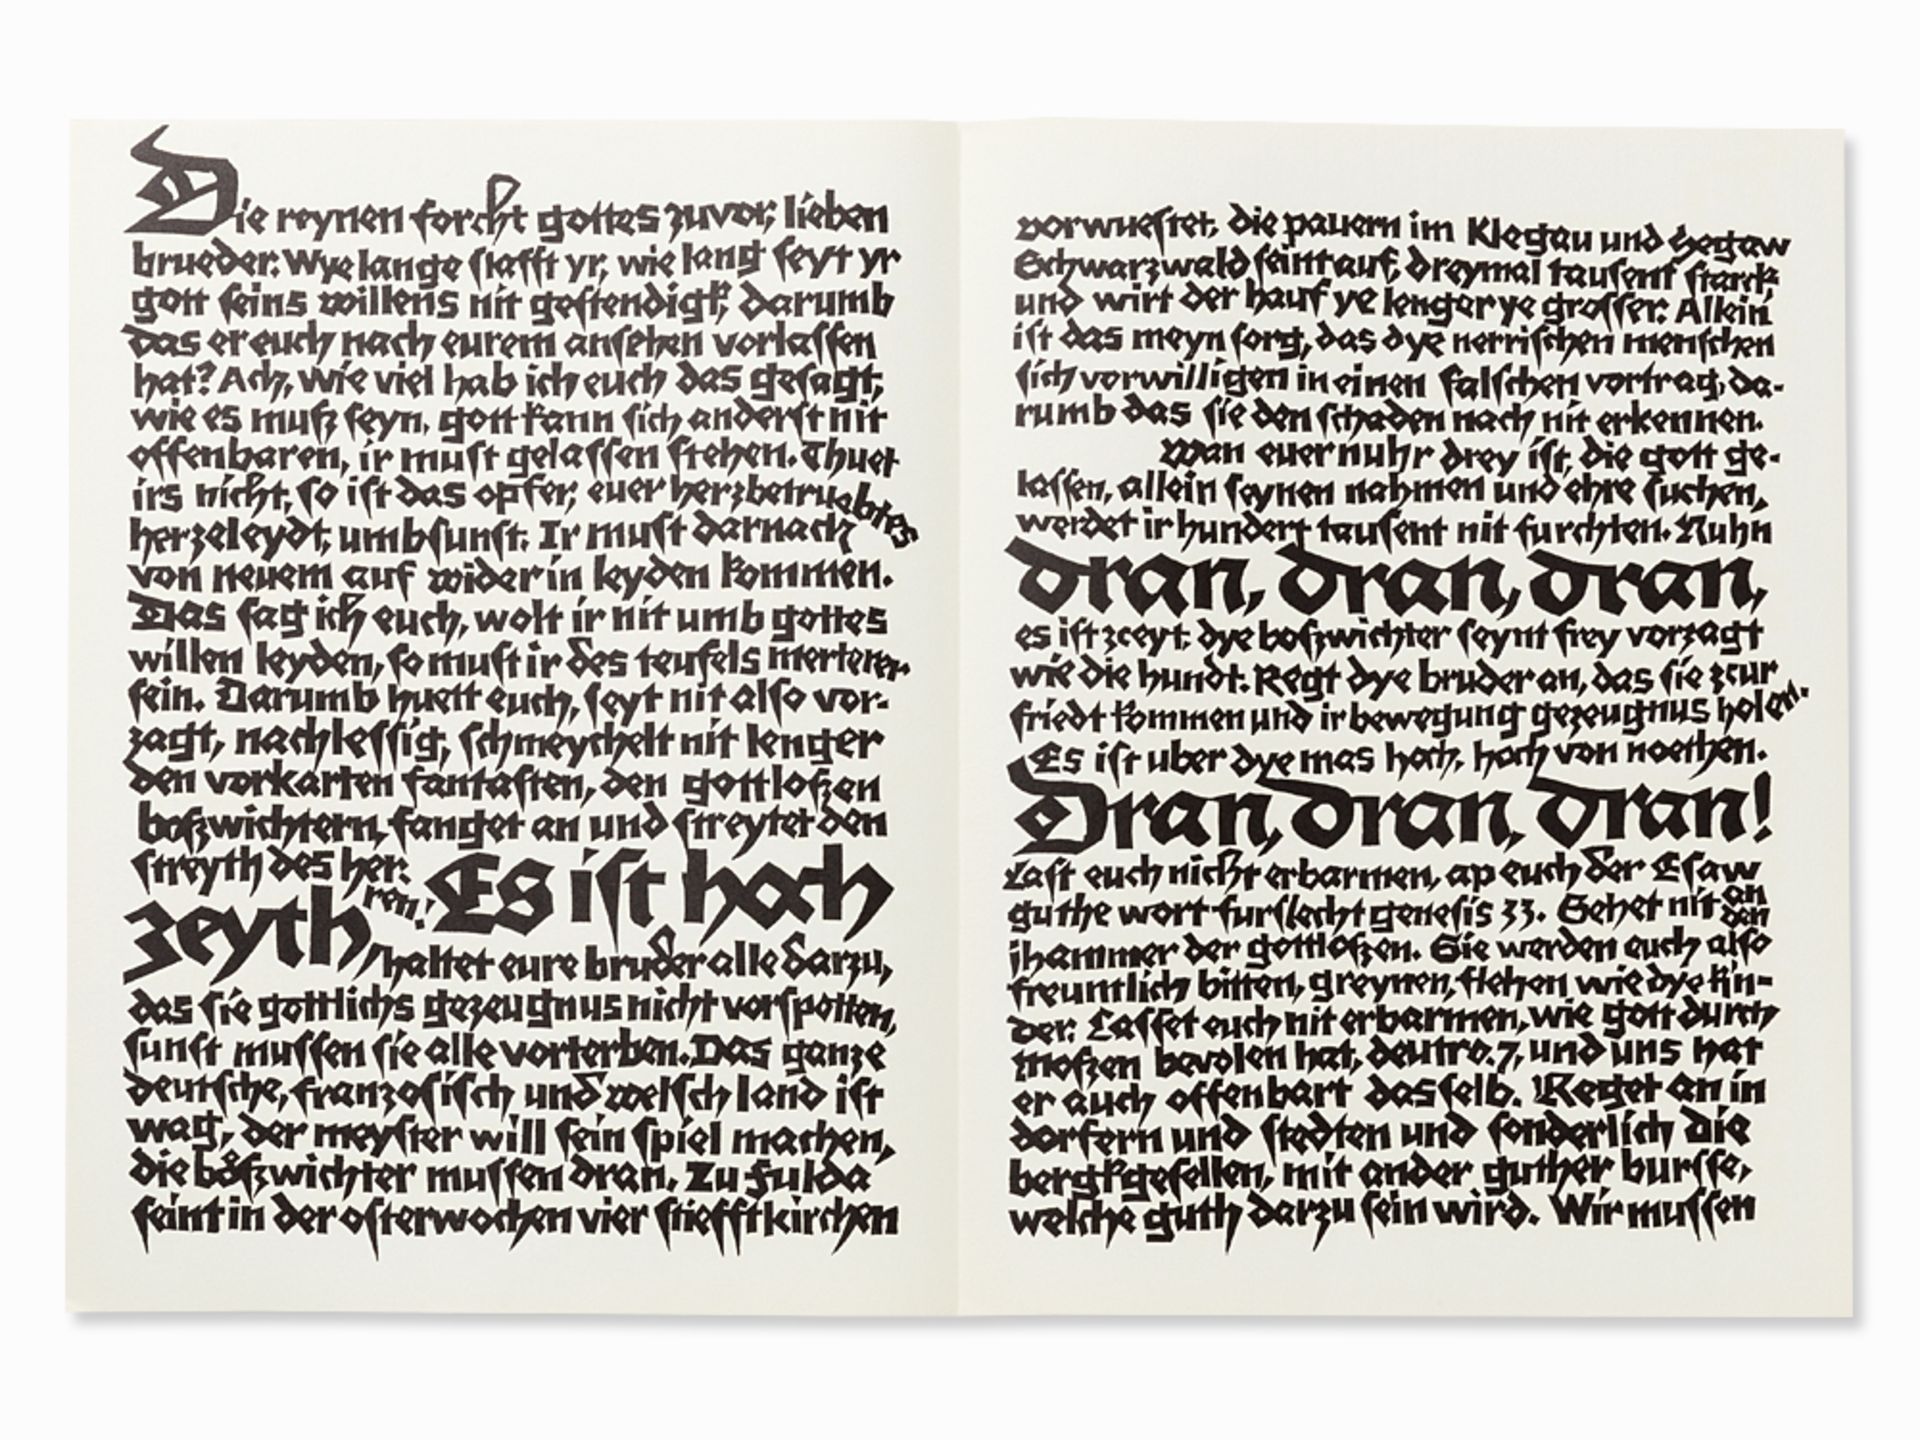 Die reynen forcht gottes zuvor, lieben
brueder. Wye lange slafft yr, wie lang seyt yr
gott seins willens nit gestendigk, darumb
das er euch nach eurem ansehen vorlassen
hat? Ach, wie viel hab ich euch das gesagt,
wie es musz seyn, gott kann sich anderst nit
offenbaren, ir must gelassen stehen. Thuet
irs nicht, so ist das opfer, euer herzbetruebtes
herzeleydt, umbsunst. Ir must darnach
von neuem auf wider in leyden kommen.
Das sag ich euch, wolt ir nit umb gottes
willen leyden, so must ir des teufels merterer
sein. Darumb huett euch, seyt nit also vor-
zagt, nachlessig, schmeychelt nit lenger
den vorkarten fantasten, den gottloszen
boszwichtern, fanget an und streytet den
streyth des her:
ren! Es ist hoch
zeyth, haltet eure bruder alle darzu,
das sie gottlichs gezeugnus nicht vorspotten,
sunst mussen sie alle vorterben. Das ganze
deutsche, franzosisch und welsch land ist
wag, der meyster will sein spiel machen,
die boszwichter mussen dran. Zu Fulda
seint in der osterwochen vier stiefftkirchen
vorwuestet, die pauern im Klegau und Hegaw
Schwarzwald seint auf, dreymal tausent starck
und wirt der hauf ye lenger ye grosser. Allein
ist das meyn sorg, das dye nerrischen menschen
sich vorwilligen in einen falschen vortrag, da-
rumb das sie den schaden nach nit erkennen.
Wan euer nuhr drey ist, die gott ge-
lassen, allein seynen nahmen und ehre suchen,
werdet ir hundert tausent nit furchten. Nuhn
dran, dran, dran,
es ist zceyt, dye boszwichter seynt frey vorzagt
wie die hundt. Regt dye bruder an, das sie zcur
friedt kommen und ir bewegung gezeugnus holen.
Es ist uber dye mas hoch, hoch von noethen.
Dran, dran, dran!
Last euch nicht erbarmen, ap euch der Esaw
guthe wort furslecht genesis 33. Sehet nit an den
jhammer der gottloszen. Sie werden euch also
freuntlich bitten, greynen, flehen wie dye kin-
der. Lasset euch nit erbarmen, wie gott durch
moszen bevolen hat, deutro. 7, und uns hat
er auch offenbart dasselb. Reget an in
dorfern und stedten und sonderlich die
bergkgesellen, mit ander guther bursse,
welche guth darzu sein wird. Wir mussen